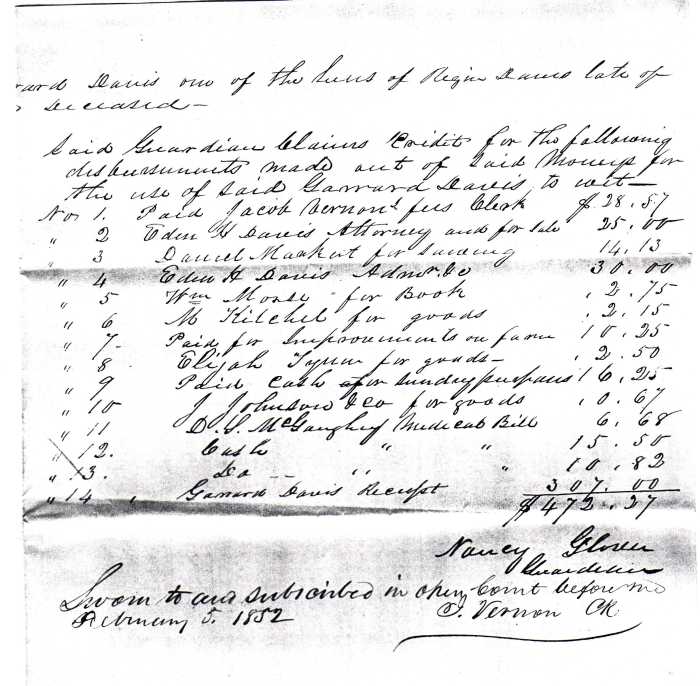 rard Davis one of the heirs of Regin Davis late of
Deceased —
Said Guardian Claims Credit for the following
disbursments made out of said Moneys for
the use of said Garrard Davis, to wit —
No. 1. Paid Jacob Vernon's fees Clerk $ 28.57
" 2 Eden H Davis Attorney and for sale 25.00
" 3 Daniel for 14.13
" 4 Eden H Davis Admr. &c 30.00
" 5 Wm Morse for Book , 2.75
" 6 M Kitchel for goods , 2.15
" 7 - Paid for Improvements on farm 10.25
" 8 Elijah for goods — , 2.50
" 9 Paid Cash for sunday purpous 16.25
" 10 J Johnson & co for goods , 0.67
" 11 D. S. McGaughey Medical Bill 6.68
" 12. Cash " " 15.50
" 13. Do -- " " 10.82
" 14 " Garrard Davis Receipt 307.00
$ 472.27
Nancy Glover
Guardian
Sworn to and subscribed in open Court before me
February 5. 1852 J. Vernon Ck